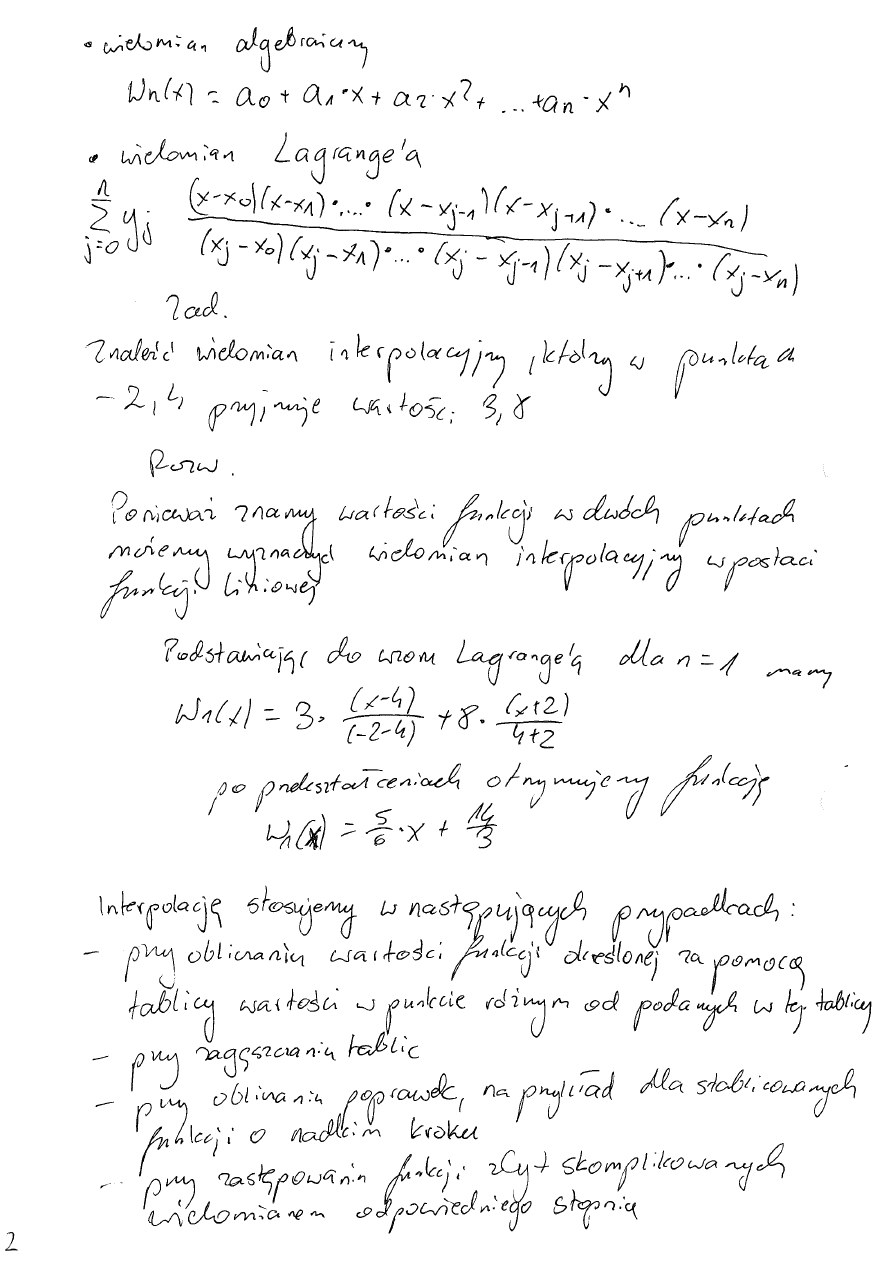 • wielomian algebraiczny
Wn(x) = a0 + a1·x + a2·x² + ... + an·x^n
• wielomian Lagrange'a
n
∑ yj (x-x0)(x-x1)·...·(x-xj-1)(x-xj+1)·...(x-xn)
j=0 (xj-x0)(xj-x1)·...·(xj-xj-1)(xj-xj+1)·...·(xj-xn)
Zad.
Znaleźć wielomian interpolacyjny, który w punktach
-2, 4 przyjmuje wartości 3, 8
Rozw.
Ponieważ znamy wartości funkcji w dwóch punktach
możemy wyznaczyć wielomian interpolacyjny w postaci
funkcji liniowej
Podstawiając do wzoru Lagrange'a dla n=1 mamy
W1(x) = 3· (x-4)/(-2-4) + 8· (x+2)/4+2
po przekształceniach otrzymujemy funkcję
W1(x) = 5/6·x + 14/3
Interpolację stosujemy w następujących przypadkach:
- przy obliczaniu wartości funkcji określonej za pomocą
tablicy wartości w punkcie różnym od podanych w tej tablicy
- przy zagęszczaniu tablic
- przy obliczaniu poprawek, na przykład dla stablicowanych
funkcji o rzadkim kroku
- przy zastępowaniu funkcji zbyt skomplikowanych
wielomianem odpowiedniego stopnia
2